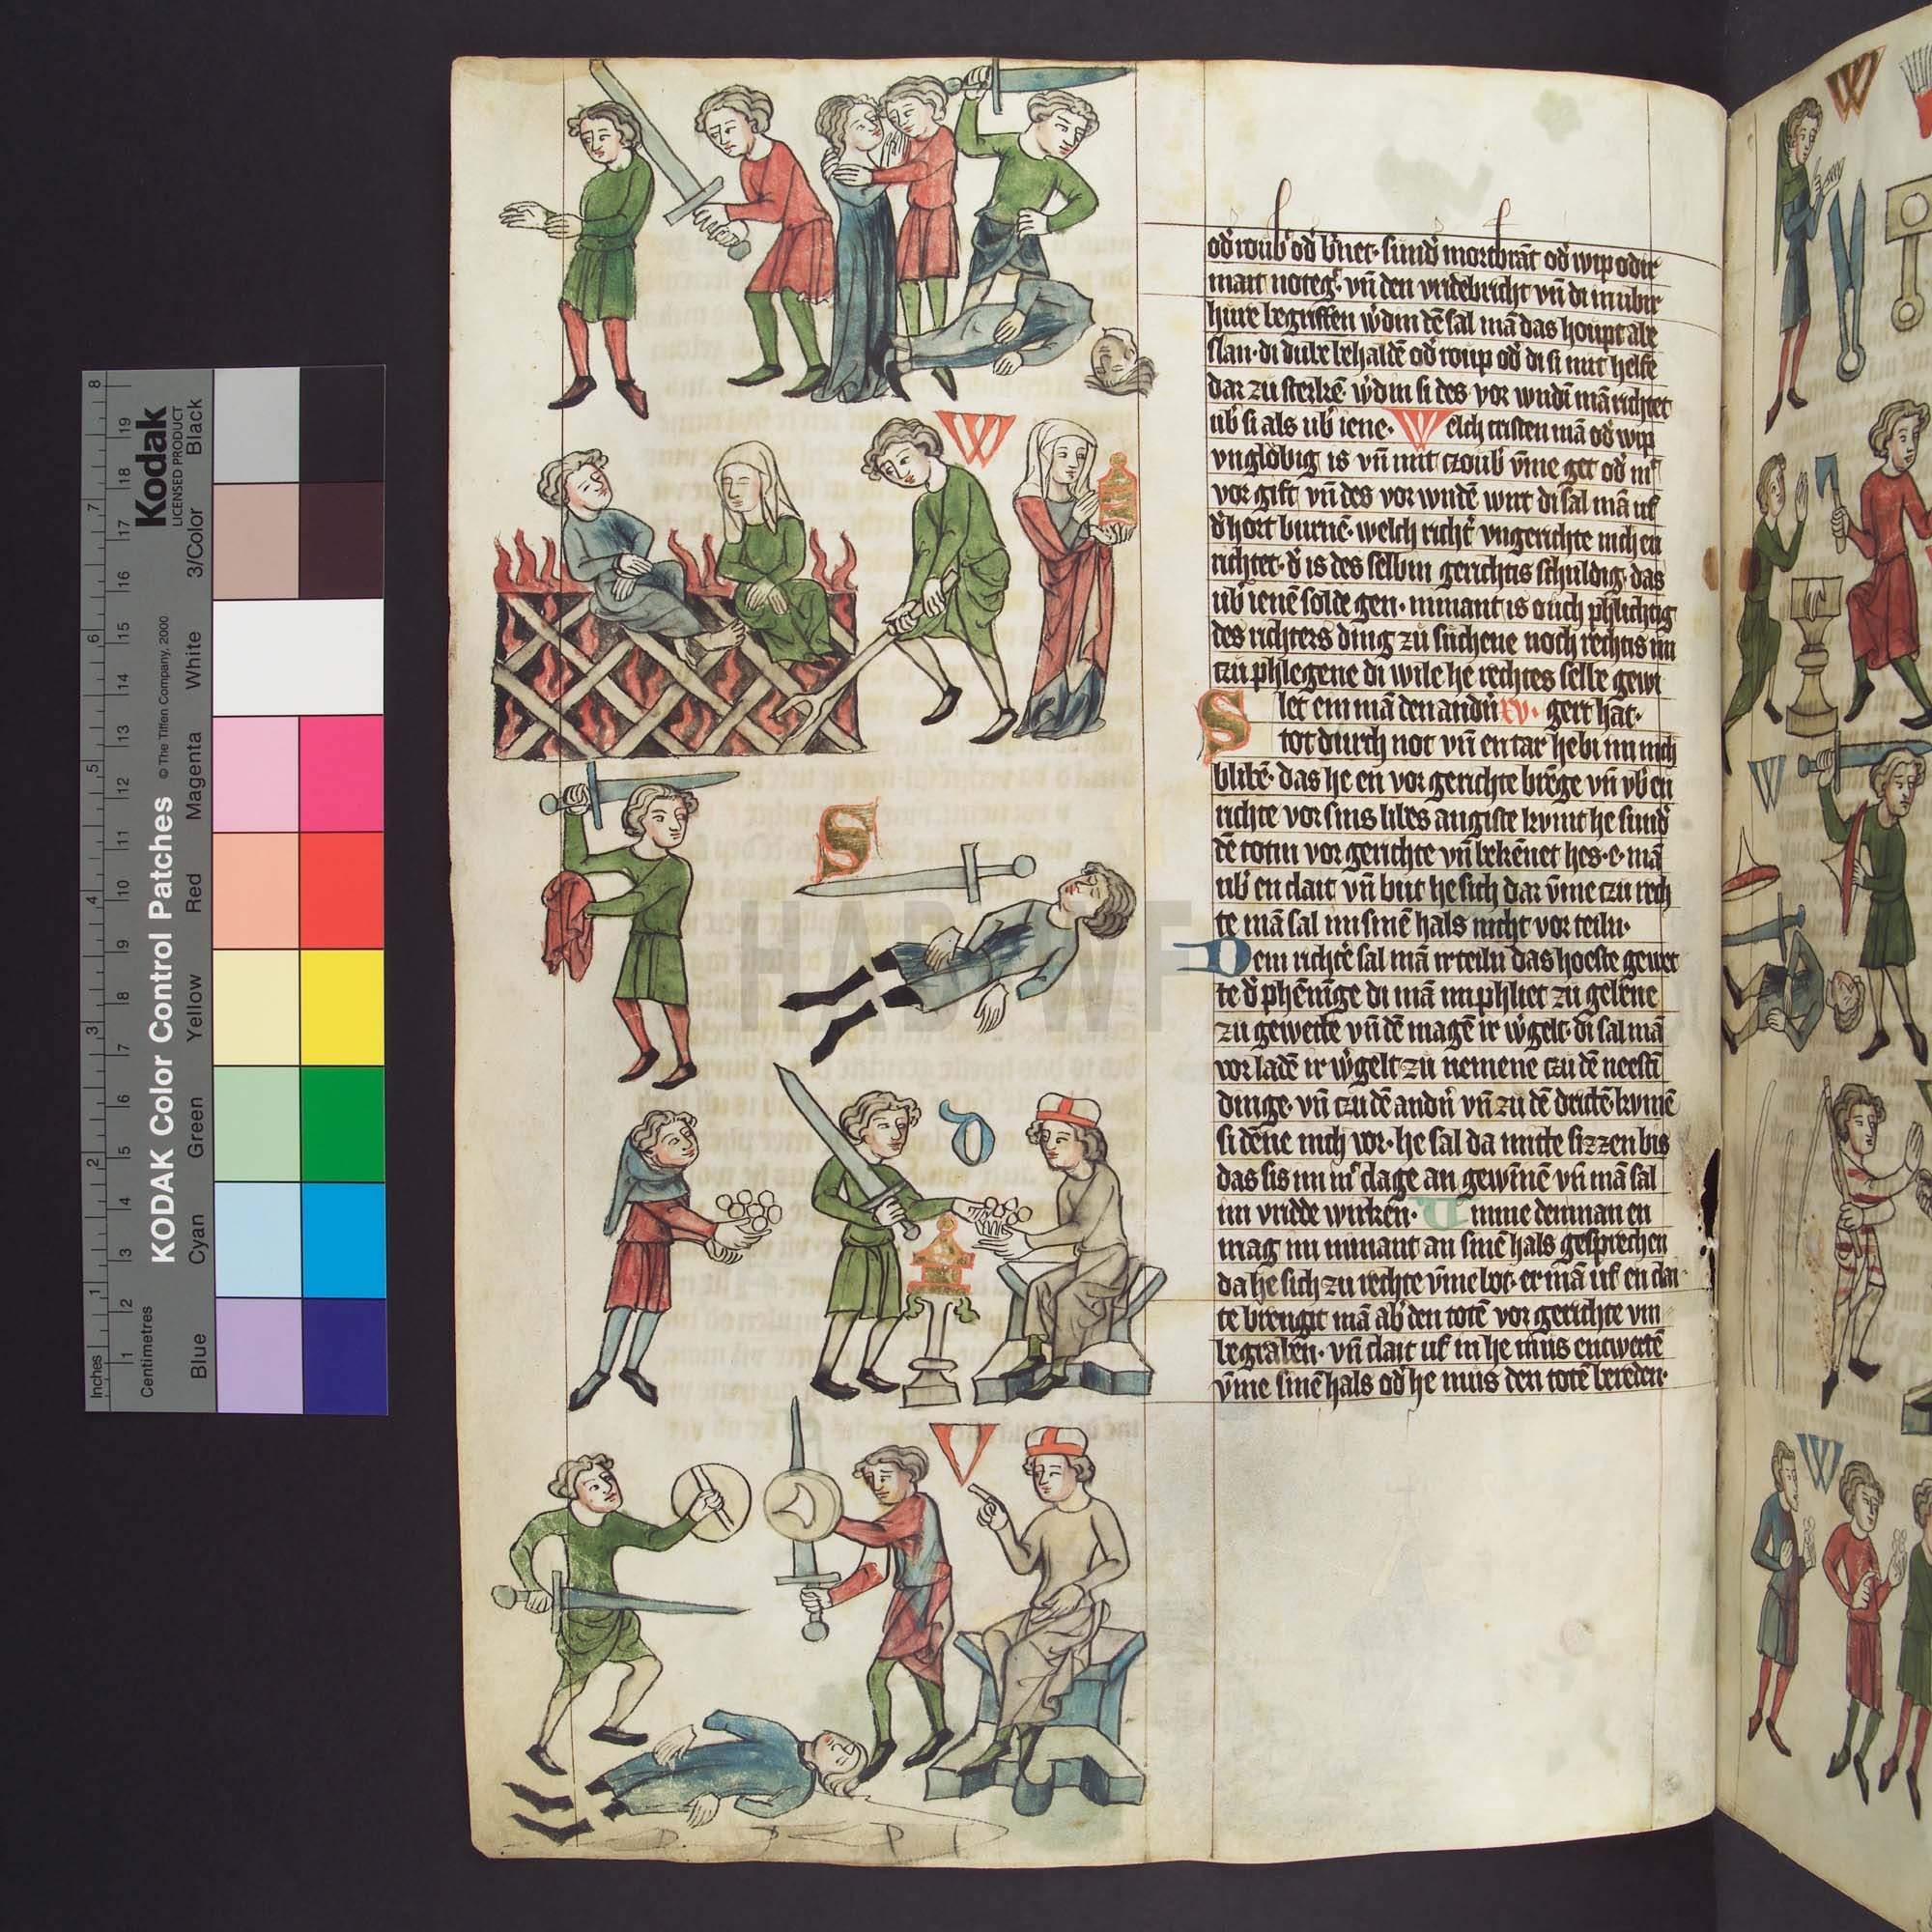 KODAK Color Control Patches
© The Tiffen Company, 2000
Kodak
LICENSED PRODUCT
Inches
1
2
3
4
5
6
7
8
Centimetres
1
2
3
4
5
6
7
8
9
10
11
12
13
14
15
16
17
18
19
Blue
Cyan
Green
Yellow
Red
Magenta
White
3/Color
Black
W
S
D
V
HAB WF
od' roub od' b'net. sund' mortbrāt od' wip odir
mait notegt. vn̄ den vridebricht vn̄ di in ubir
hure begriffen w'din dē sal mā das houpt abe
slan. di dube behaldē od' roup od' di si mit helfe
dar zu sterkē. w'din si des vor wndī mā richtet
ub' si als ub' iene. Welch cristen mā od' wip
vnglöbig is vn̄ mit czoub' v̄me get od' mit
vor gift vn̄ des vor wndē wirt di sal mā uf
d' hort burnē. welch richt' vngerichte nich en
richtet. d' is des selbin gerichtis schuldig. das
ub' ienē solde gen. nimant is ouch phlichtig
des richters ding zu suchene noch rechtis im
czu phlegene di wile he rechtes selbe gewi
Slet ein mā den andn̄ xv. gert hat.
tot durch not vn̄ en tar he bi im nich
blibē. das he en vor gerichte brēge vn̄ vb' en
richte vor sins libes angiste kvmt he sund'
dē totin vor gerichte vn̄ bekēnet hes. e. mā
ub' en clait vn̄ but he sich dar v̄me czu rech
te mā sal im sinē hals nicht vor teiln.
Dem richt'e sal mā irteiln das hoeste gewet
te d' phēnīge di mā im phliet zu gebene
zu gewette vn̄ dē magē ir w'gelt. di sal mā
vor ladē ir w'gelt zu nemene czu dē neestī
dinge. vn̄ czu dē andn̄ vn̄ zu dē drittē. kvmē
si dēne nich vor. he sal da mitte sizzen bis
das sis im mit clage an gewīnē vn̄ mā sal
im vridde wirken. Vmme den man en
mag im nimant an sinē hals gesprechen
da he sich zu rechte v̄me bot. er mā uf en clai
te brengit mā ab' den totē vor gerichte vm
begrabēn. vn̄ clait uf in he mus entwertē
v̄me sinē hals od' he mus den totē bereden.
W
W
W